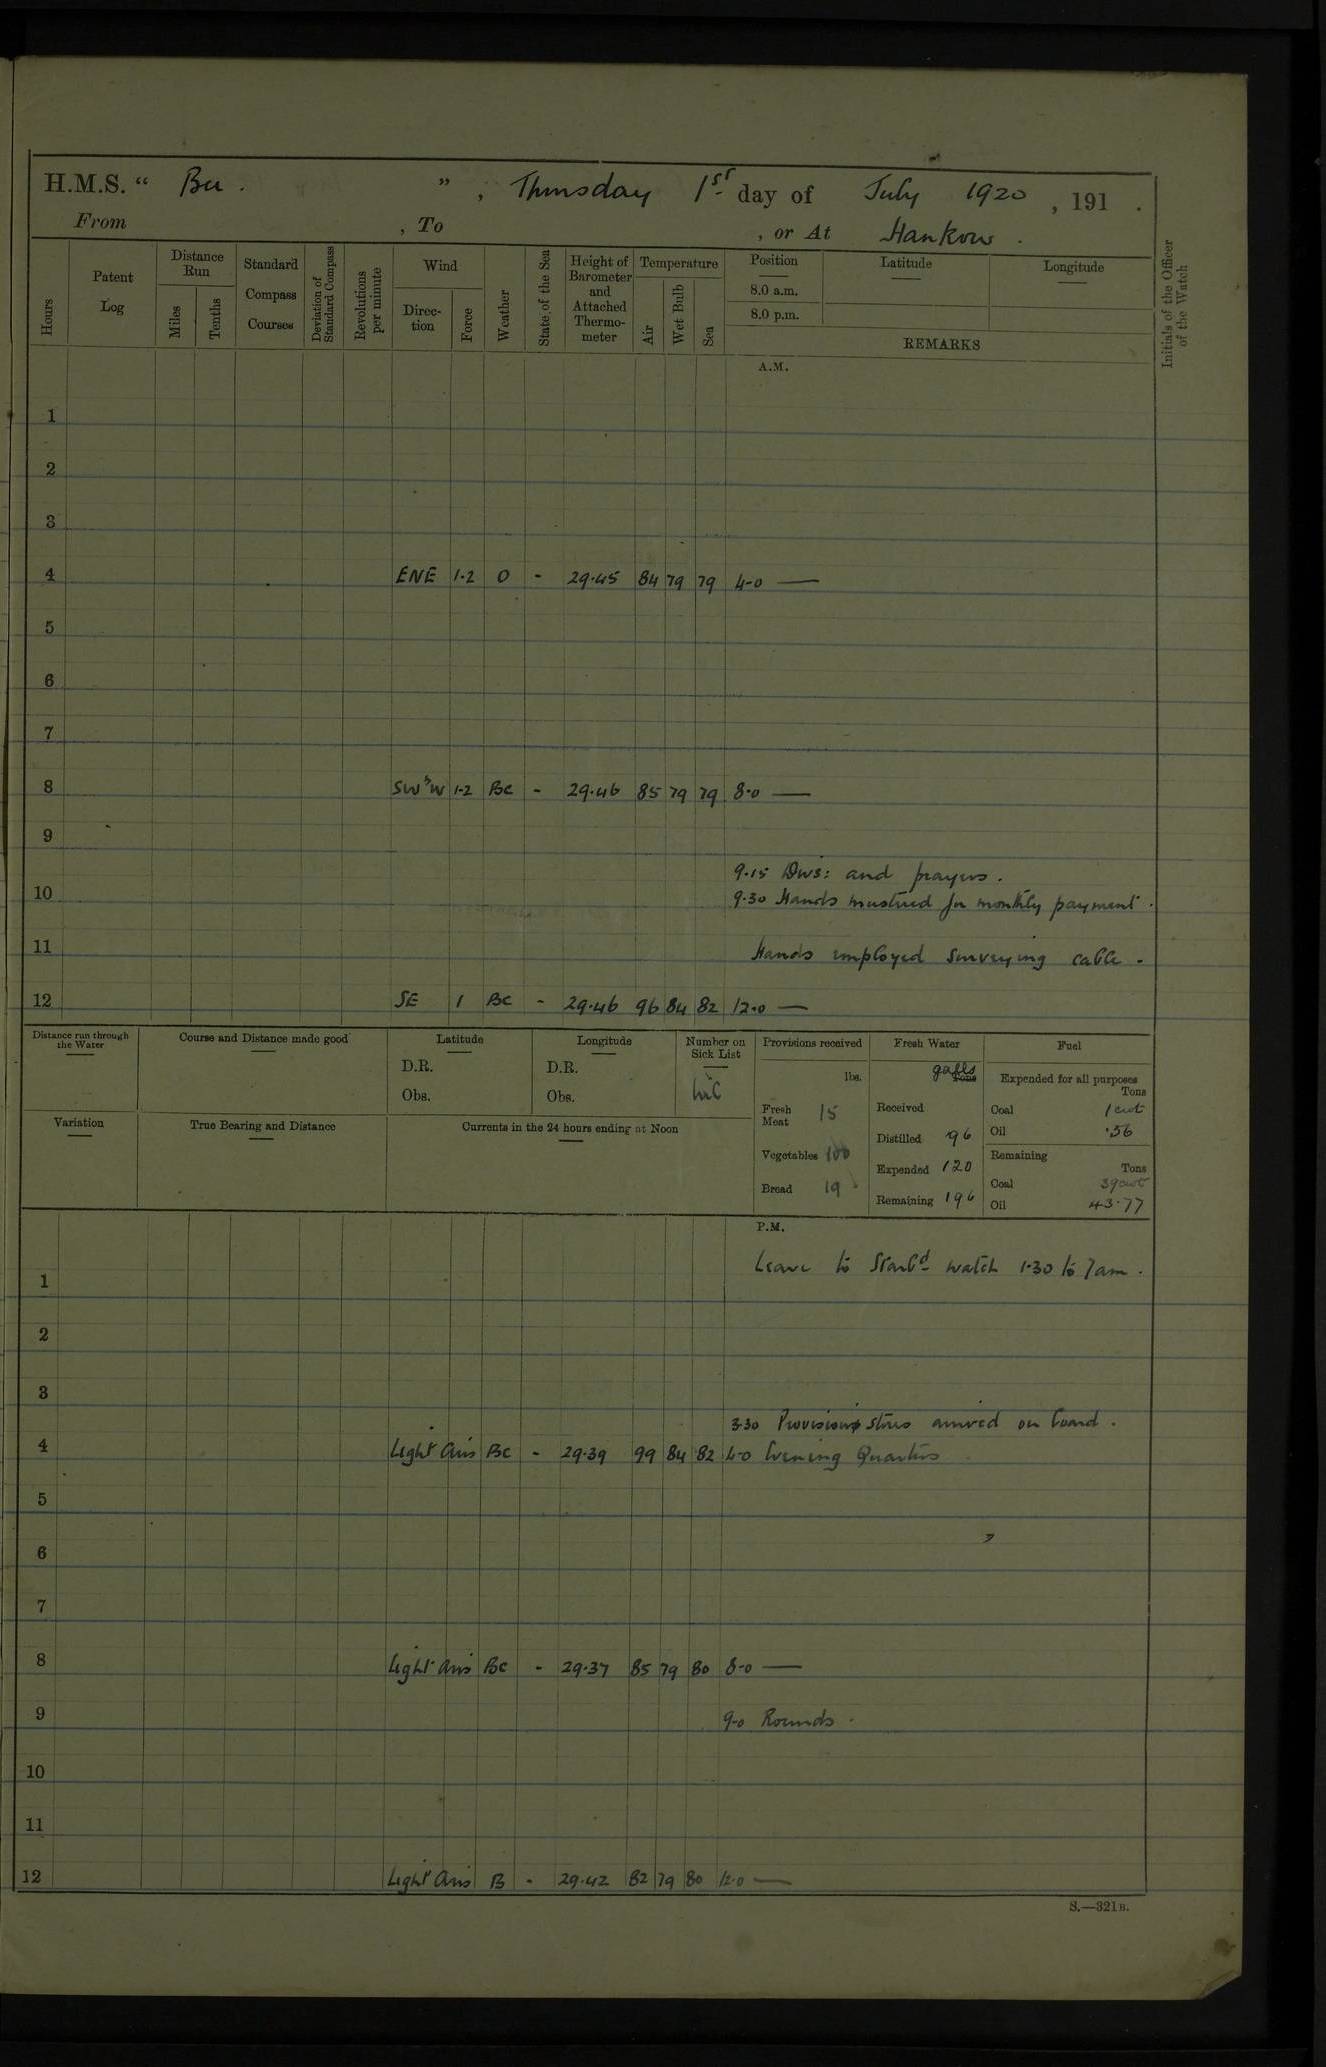 H.M.S. “ Bee . ” , Thursday 1st day of July 1920 , 191 .
From , To , or At Hankow .
Hours
Patent Log
Distance Run
Miles
Tenths
Standard Compass Courses
Deviation of Standard Compass
Revolutions per minute
Wind
Direction
Force
Weather
State of the Sea
Height of Barometer and Attached Thermometer
Temperature
Air
Wet Bulb
Sea
Position
8.0 a.m.
8.0 p.m.
Latitude
Longitude
REMARKS
Initials of the Officer of the Watch
A.M.
1
2
3
4 ENE 1·2 O - 29·45 84 79 79 4-0 —
5
6
7
8 SWbW 1·2 BC - 29·46 85 79 79 8·0 —
9
9·15 Divs: and prayers.
10 9·30 Hands mustered for monthly payment.
11 Hands employed surveying cable -
12 SE 1 BC - 29·46 96 84 82 12·0 —
Distance run through the Water
Course and Distance made good
Latitude
D.R.
Obs.
Longitude
D.R.
Obs.
Number on Sick List
nil
Variation
True Bearing and Distance
Currents in the 24 hours ending at Noon
Provisions received
lbs.
Fresh Meat 15
Vegetables 100
Bread 19
Fresh Water
galls
Tons
Received
Distilled 96
Expended 120
Remaining 196
Fuel
Expended for all purposes
Tons
Coal 1 cwt
Oil ·56
Remaining
Tons
Coal 39 cwt
Oil 43·77
P.M.
1 Leave to Starbd watch 1·30 to 7am.
2
3
3·30 Provisions stores arrived on board.
4 Light Airs BC - 29·39 99 84 82 4-0 Evening Quarters
5
6
7
8 Light Airs BC - 29·37 85 79 80 8-0 —
9 9-0 Rounds.
10
11
12 Light Airs B - 29·42 82 79 80 12·0 —
S.—321B.